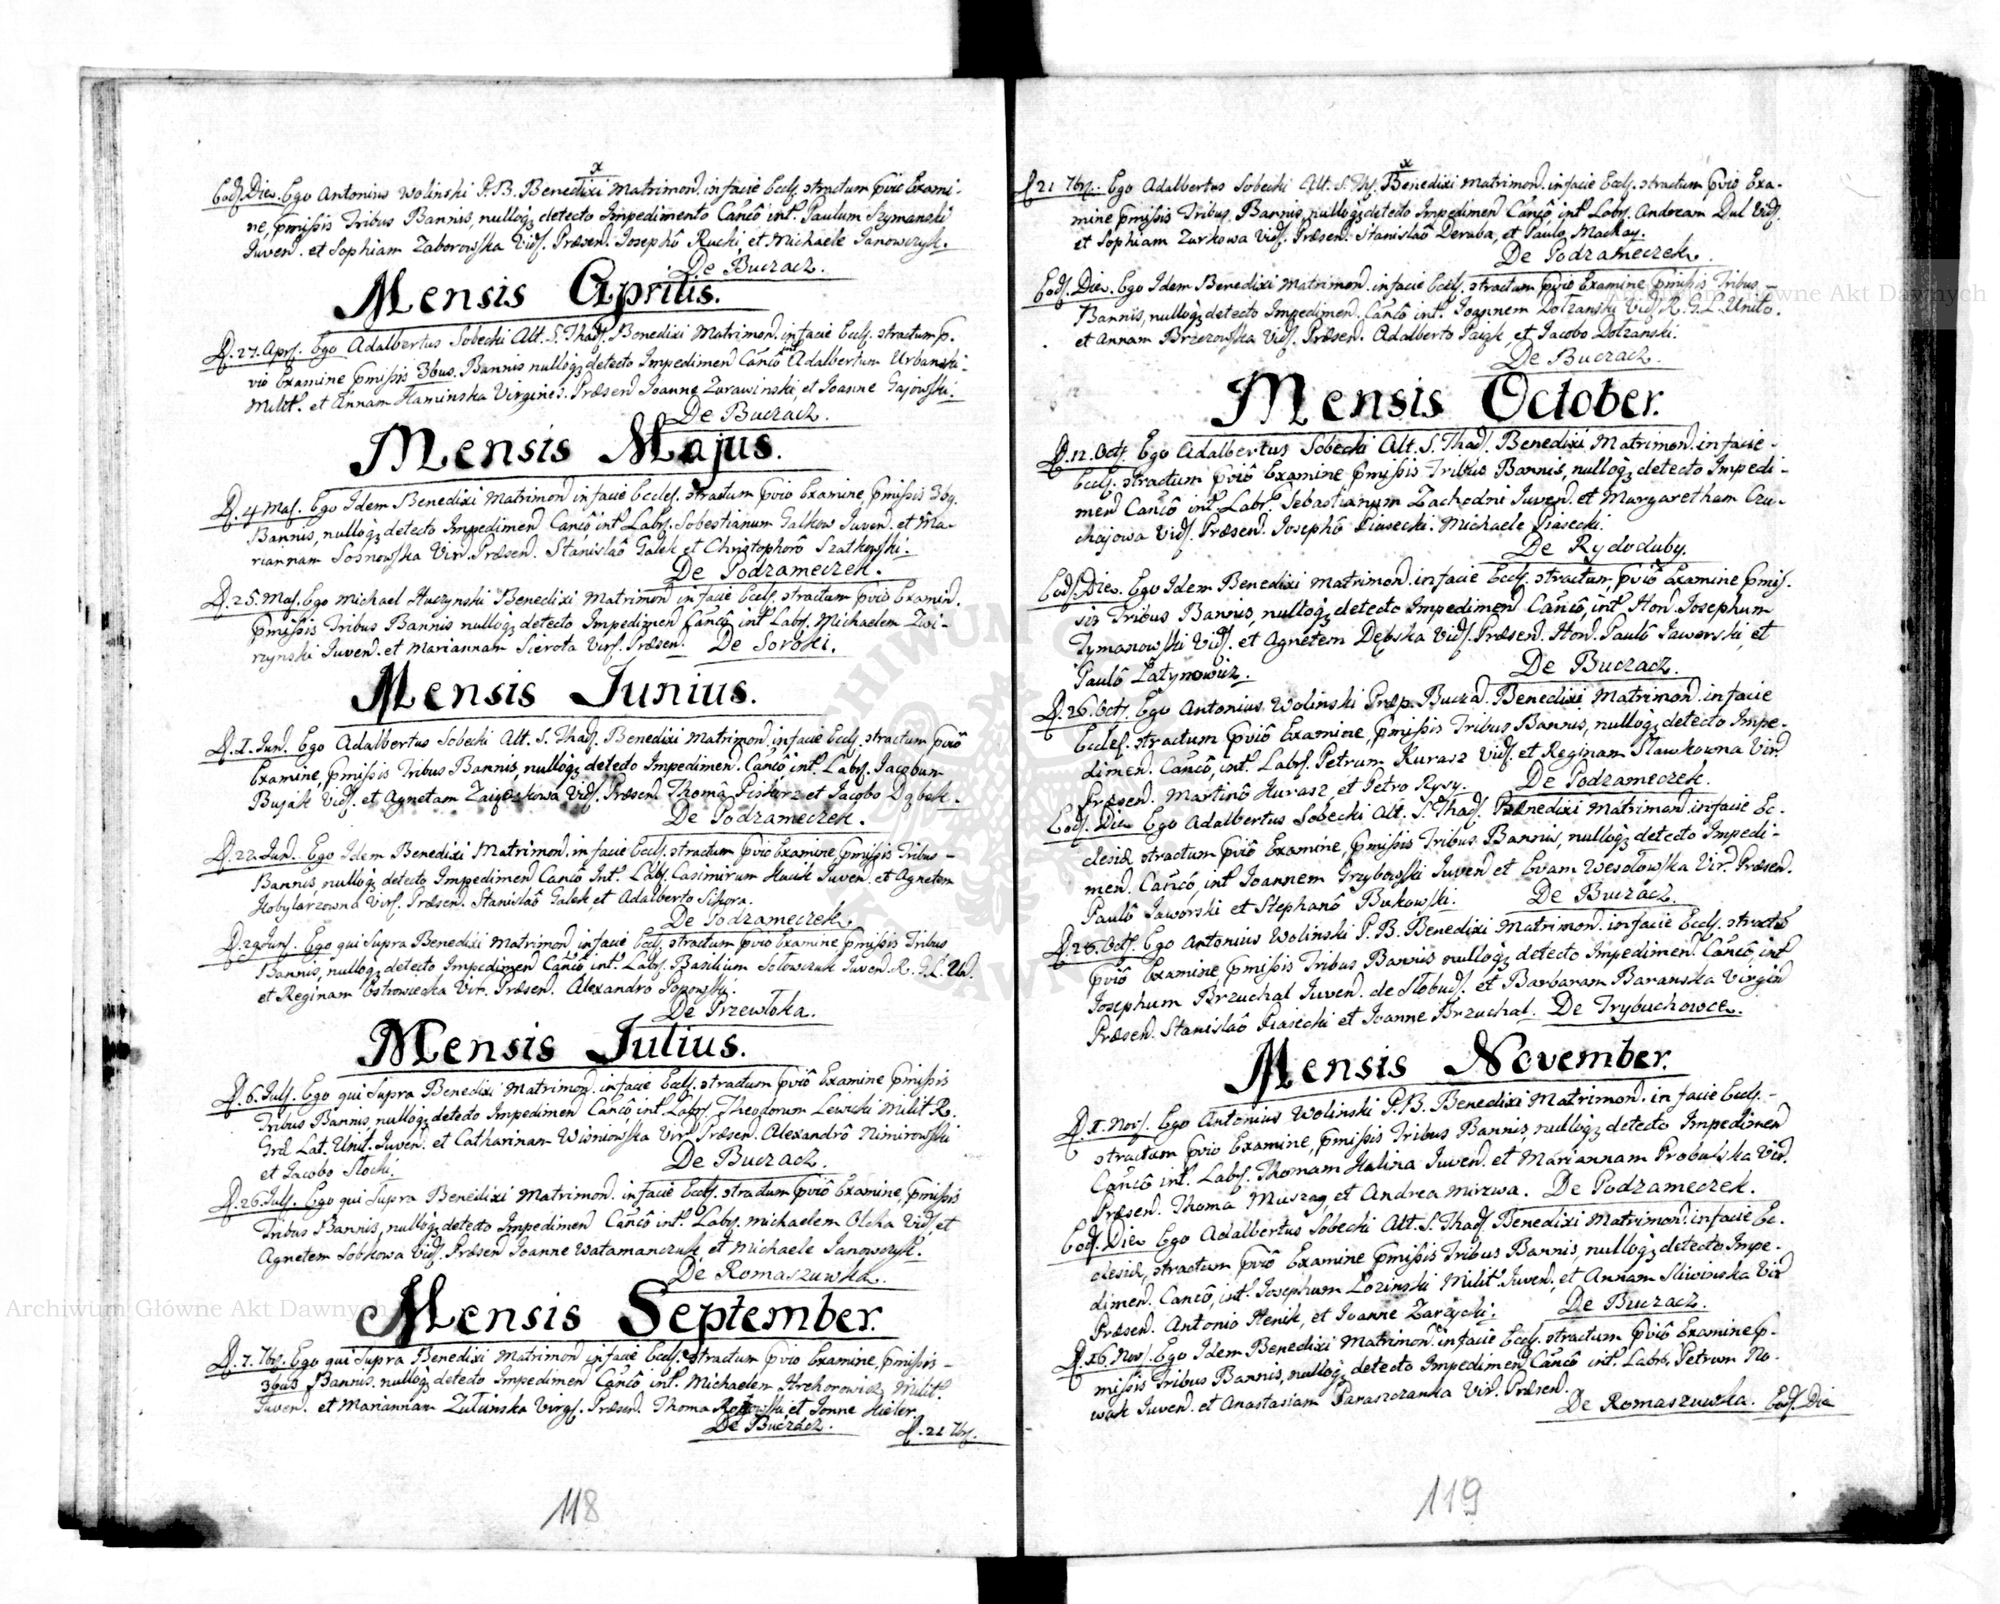 Eod. Die. Ego Antonius Wolinski P. B. Benedixi Matrimon. in facie Eccl. stractum pviô Exami-
ne, pmissis Tribus Bannis, nulloq; detecto Impedimento Canco int. Paulum Szymanski
Juven. et Sophiam Zaborowska Vid. Præsen. Josephô Rucki, et Michaele Janowczyk.
De Buczacz.
Mensis Aprilis.
D. 27. Apr. Ego Adalbertus Sobecki Alt. S. Thad. Benedixi Matrimon. in facie Eccl. stractum p-
viô Examine pmissis 3bus. Bannis nulloq; detecto Impedimen Canco int Adalbertum Urbanski
Milit. et Annam Kaminska Virgines. Præsen Joanne Zurawinski, et Joanne Gajowski.
De Buczacz.
Mensis Majus.
D. 4 Maj. Ego Idem Benedixi Matrimon in facie Eccles. stractum pviô Examine, pmissis 3bg.
Bannis, nulloq; detecto Impedimen Canco int Labr. Sobestianum Galkow Juven. et Ma-
riannam Sosnowska Vir. Præsen. Stanislaô Galek et Christophorô Szatkowski.
De Podzameczek.
D. 25. Maj. Ego Michael Huczynski Benedixi Matrimon in facie Eccl. stractum pviô Examin.
pmissis Tribus Bannis nulloq; detecto Impedimen Canco int Labr. Michaelem Zwi-
rzynski Juven. et Mariannam Sierota Vir. Præsen. De Soroki.
Mensis Junius.
D. I. Jun. Ego Adalbertus Sobecki Alt. S. Thad. Benedixi Matrimon. in facie Eccl. stractum pviô
Examine, pmissis Tribus Bannis, nulloq; detecto Impedimen. Canco int. Labr. Jacobum
Bujak Vid. et Agnetam Vid. Præsen. Thomâ Piskorz et Jacobo Dąbek.
De Podzameczek.
D. 22. Jun. Ego Idem Benedixi Matrimon. in facie Eccl. stractum pviô Examine, pmissis Tribus-
Bannis, nulloq; detecto Impedimen Canco Int. Labr. Casimirum Hauk Juven. et Agnetem
Kobylarzowna Vir. Præsen. Stanislaô Galek, et Adalberto Sikora.
De Podzameczek.
D. 29 Jun. Ego qui Supra Benedixi Matrimon. in facie Eccl. stractum pviô Examine pmissis Tribus
Bannis, nulloq; detecto Impedimen Canco int. Labr. Basilium Solowczuk Juven. R. G. L. Un.
et Reginam Ostrowiecka Vir. Præsen. Alexandrô Popowski.
De Przewłoka.
Mensis Julius.
D. 6. Jul. Ego qui Supra Benedixi Matrimon. in facie Eccl. stractum pviô Examine pmissis
Tribus Bannis, nulloq; detecto Impedimen Canco int. Labr. Theodorum Lewicki Milit R.
Grd Lat. Unit. Juven. et Catharinam Wisniowska Vir. Præsen. Alexandrô Nimirowski
et Jacobo Słocki.
De Buczacz.
D. 26. Jul. Ego qui Supra Benedixi Matrimon. in facie Eccl. stractum pviô Examine, pmissis
Tribus Bannis, nulloq; detecto Impedimen Canco int. Labr. Michaelem Olcha Vid, et
Agnetem Sobkowa Vid. Præsen Joanne Watamanczuk et Michaele Janowczyk.
De Romaszuwka.
Mensis September.
D. 7. 7br. Ego qui Supra Benedixi Matrimon in facie Eccl. stractum pviô Examine, pmissis-
3bus Bannis. nulloq; detecto Impedimen Canco int. Michaelem Hrehorowicz Milit.
Juven. et Mariannam Zulinska Virg. Præsen. Thoma et Jonne Kieler.
De Buczacz.
D. 21 7br.
118
D 21 7br. Ego Adalbertus Sobecki Alt. S. Th. Benedixi Matrimon. in facie Eccl. stractum pviô Exa-
mine pmissis Tribus. Bannis, nulloq; detecto Impedimen Canco, int Labr. Andream Dul Vid.
et Sophiam Zurkowa Vid. Præsen. Stanislaô Deraba, et Paulo Mackay.
De Podzameczek.
Eod. Die. Ego Idem Benedixi Matrimon. in facie Eccl. stractum pviô Examine pmissis Tribus-
Bannis, nulloq; detecto Impedimen. Canco int. Joannem Dolzanski Vid. R. G. L. Unito.
et Annam Brzezowska Vid. Præsen. Adalberto Paizk, et Jacobo Dolzanski.
De Buczacz.
Mensis October.
D. 12. Oct. Ego Adalbertus Sobecki Alt. S. Thad. Benedixi Matrimon. in facie-
Eccl. stractum pviô Examine, pmyssis Tribus Bannis, nulloq; detecto Impedi-
men Canco int. Labr. Sebastianum Zachodni Juven. et Margaretham Czu-
chajowa Vid. Præsen. Josephô Piasecki. Michaele Piasecki.
De Rydoduby.
Eod. Die. Ego Idem Benedixi Matrimon. in facie Eccl. stractum pviô Examine pmis-
sis Tribus Bannis, nulloq; detecto Impedimen Canco, int. Hon. Josephum
Tymanowski Vid. et Agnetem Dębska Vid. Præsen. Hon. Paulô Jaworski, et
Paulô Łatynowicz.
De Buczacz.
D. 26. Oct. Ego Antonius Wolinski Præp. Bucza. Benedixi Matrimon. in facie
Eccles. stractum pviô Examine, pmissis Tribus Bannis, nulloq; detecto Impe-
dimen. Canco, int. Labr. Petrum Kurasz Vid. et Reginam Sławkowna Vir
Præsen. Martinô Kurasz et Petro Rysy.
De Podzameczek.
Eod. Die Ego Adalbertus Sobecki Alt. S. Thad. Benedixi Matrimon. in facie Ec-
clesiæ stractum pviô Examine, pmissis Tribus Bannis, nulloq; detecto Impedi-
men. Canco, int Joannem Grzybowski Juven et Evam Wesołowska Vir. Præsen.
Paulô Jaworski et Stephanô Bukowski.
De Buczacz.
D. 28. Oct. Ego Antonius Wolinski P. B. Benedixi Matrimon. in facie Eccl. stractô
pviô Examine pmissis Tribus Bannis nulloq; detecto Impedimen. Canco, int
Josephum Brzuchal Juven. de Słobud. et Barbaram Baranska Virgin
Præsen. Stanislaô Piasecki et Joanne Brzuchal. De Trybuchowce.
Mensis November.
D. I. Nov. Ego Antonius Wolinski P. B. Benedixi Matrimon. in facie Eccl.-
stractum pviô Examine, pmissis Tribus Bannis, nulloq; detecto Impedimen
Canco int. Labr. Thomam Kalina Juven. et Mariannam Probulska Vir.
Præsen. Thoma et Andrea Mirzwa. De Podzameczek.
Eod. Die Ego Adalbertus Sobecki Alt. S. Thad. Benedixi Matrimon. in facie Ec-
clesiæ, stractum pviô Examine pmissis Tribus Bannis, nulloq; detecto Impe-
dimen. Canco, int. Josephum Lozinski Milit. Juven, et Annam Sliwinska Vir
Præsen. Antonio Henik, et Joanne Zarzycki.
De Buczacz.
D. 16. Nov. Ego Idem Benedixi Matrimon. in facie Eccl. stractum pviô Examine p-
missis Tribus Bannis, nulloq; detecto Impedimen Canco int. Labr. Petrum No-
wak Juven. et Anastasiam Paraszczanka Vir. Præsen.
De Romaszuwka. Eod. Die
119
Archiwum Główne Akt Dawnych